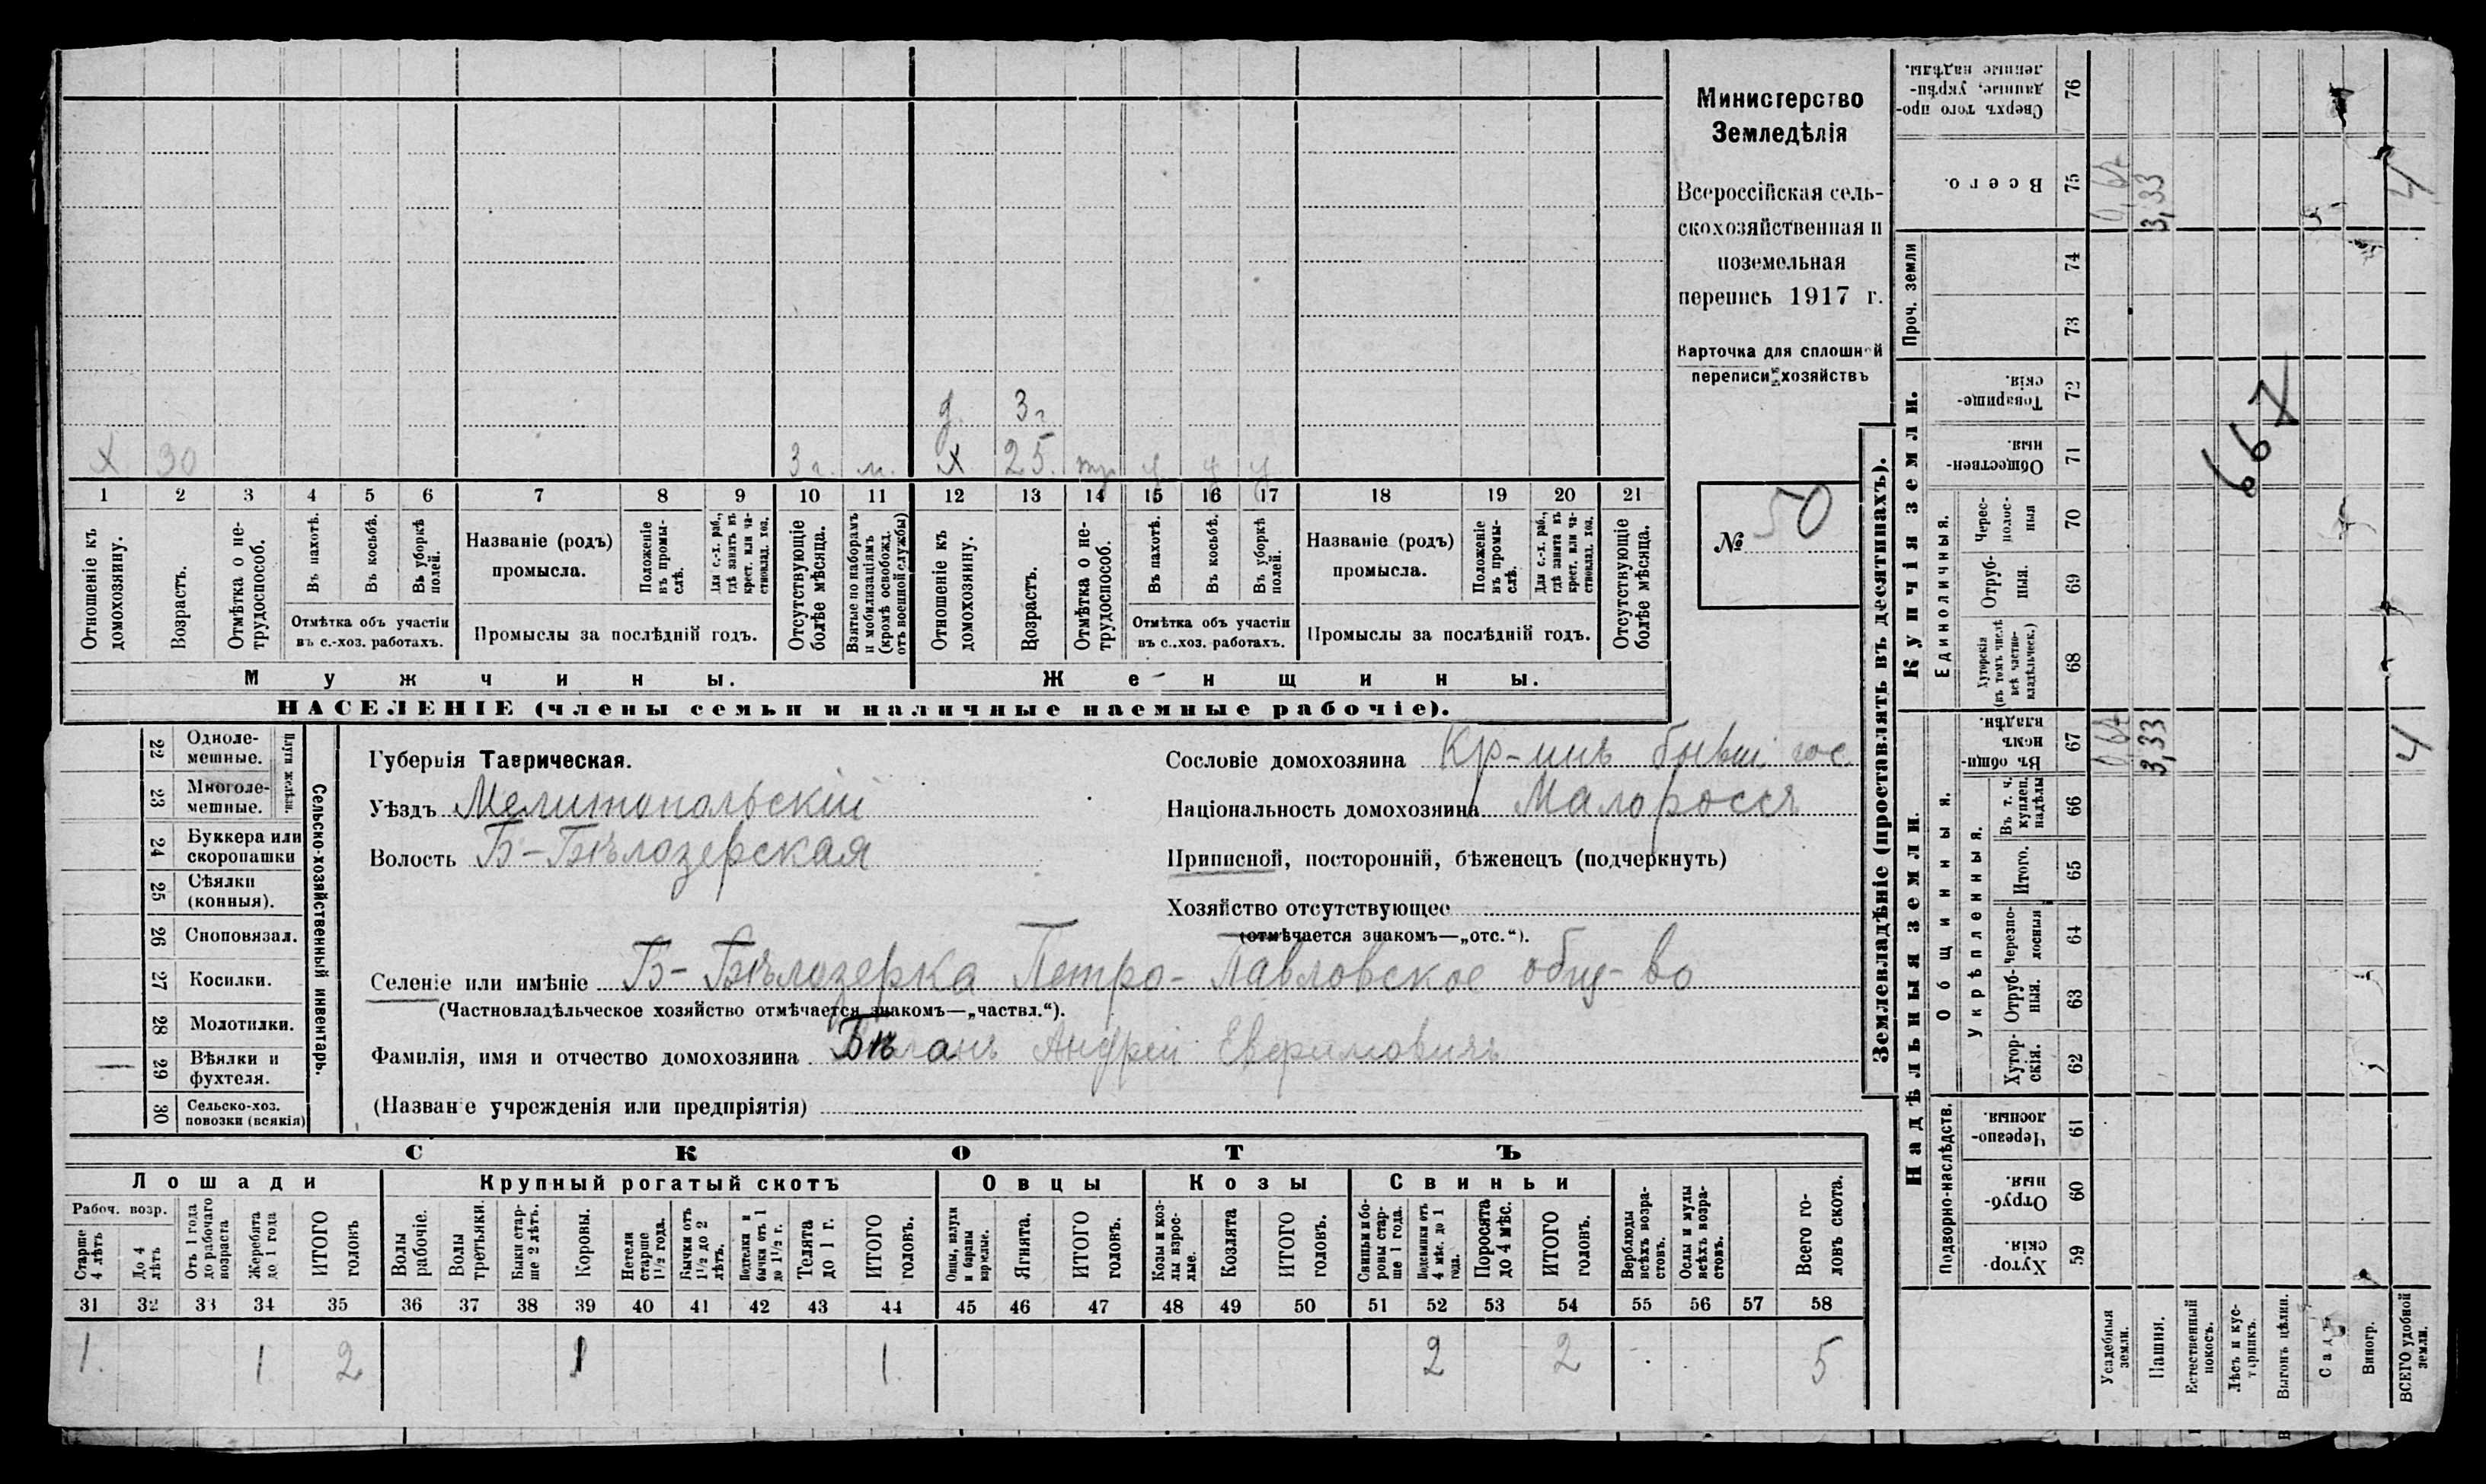 Министерство
Земледѣлія
Всероссійская сель-
скохозяйственная и
поземельная
перепись 1917 г.
Карточка для сплошной
переписи хозяйствъ
№ 50
д. 3 г.
х 30 3 г. м. х 25
1 2 3 4 5 6 7 8 9 10 11 12 13 14 15 16 17 18 19 20 21
Отношеніе къ домохозяину.
Возрастъ.
Отмѣтка о не-трудоспособ.
Въ пахотѣ.
Въ косьбѣ.
Въ уборкѣ полей.
Отмѣтка объ участіи
въ с.-хоз. работахъ.
Названіе (родъ)
промысла.
Положеніе въ промы-слѣ.
Для с.-х. раб., гдѣ занятъ въ крест. или ча-стновлад. хоз.
Промыслы за послѣдній годъ.
Отсутствующіе болѣе мѣсяца.
Взятые по наборамъ и мобилизаціямъ (кромѣ освобожд. отъ военной службы)
Отношеніе къ домохозяину.
Возрастъ.
Отмѣтка о не-трудоспособ.
Въ пахотѣ.
Въ косьбѣ.
Въ уборкѣ полей.
Отмѣтка объ участіи
въ с..хоз. работахъ.
Названіе (родъ)
промысла.
Положеніе въ промы-слѣ.
Для с.-х. раб., гдѣ занята въ крест. или ча-стновлад. хоз.
Промыслы за послѣдній годъ.
Отсутствующіе болѣе мѣсяца.
Мужчины. Женщины.
НАСЕЛЕНІЕ (члены семьи и наличные наемные рабочіе).
Сельско-хозяйственный инвентарь.
Плуги желѣзн.
22 Одноле-мешные.
23 Многоле-мешные.
24 Буккера или скоропашки
25 Сѣялки (конныя).
26 Сноповязал.
27 Косилки.
28 Молотилки.
29 Вѣялки и фухтеля. —
30 Сельско-хоз. повозки (всякія)
Губернія Таврическая.
Уѣздъ Мелитопольскій
Волость Б-Бѣлозерская
Сословіе домохозяина Кр-инъ бывш. гос.
Національность домохозяина Малороссъ
Приписной, посторонній, бѣженецъ (подчеркнуть)
Хозяйство отсутствующее
(отмѣчается знакомъ—„отс.“).
Селеніе или имѣніе Б-Бѣлозерка Петро-Павловское общ-во
(Частновладѣльческое хозяйство отмѣчается знакомъ—„частвл.“).
Фамилія, имя и отчество домохозяина Андрей Евфимовичъ
(Названіе учрежденія или предпріятія)
СКОТЪ
Лошади Крупный рогатый скотъ Овцы Козы Свиньи
Рабоч. возр.
Старше 4 лѣтъ
До 4 лѣтъ
Отъ 1 года до рабочаго возраста
Жеребята до 1 года
ИТОГО головъ
Волы рабочіе.
Волы третьяки.
Быки стар-ше 2 лѣтъ.
Коровы.
Нетели старше 1½ года.
Бычки отъ 1½ до 2 лѣтъ.
Подтелки и бычки отъ 1 до 1½ г.
Телята до 1 г.
ИТОГО головъ.
Овцы, валухи и бараны взрослые.
Ягнята.
ИТОГО головъ.
Козы и коз-лы взрос-лые.
Козлята
ИТОГО головъ.
Свиньи и бо-ровы стар-ше 1 года.
Подсвинки отъ 4 мѣс. до 1 года.
Поросята до 4 мѣс.
ИТОГО головъ.
Верблюды всѣхъ возра-стовъ.
Ослы и мулы всѣхъ возра-стовъ.
Всего го-ловъ скота.
31 32 33 34 35 36 37 38 39 40 41 42 43 44 45 46 47 48 49 50 51 52 53 54 55 56 57 58
1. 1 2 1 1. 2 2 5
Землевладѣніе (проставлять въ десятинахъ).
Надѣльныя земли. Купчія земли. Проч. земли
Подворно-наслѣдств.
Общинныя.
Укрѣпленныя.
Единоличныя.
Хутор-скія. 59
Отруб-ныя. 60
Черезпо-лосныя 61
Хутор-скія. 62
Отруб-ныя. 63
черезпо-лосныя 64
Итого. 65
Въ т. ч. куплен. надѣлы 66
Въ общин-номъ владѣн. 67
Хуторскія (въ томъ числѣ всѣ частно-владѣльческ.) 68
Отруб-ныя. 69
Черес-полос-ныя 70
Обществен-ныя. 71
Товарище-скія. 72
73
74
Всего. 75
Сверхъ того про-данные, укрѣп-ленные надѣлы. 76
Усадебныя земли.
Пашня. 3,33 3,33
Естественный покосъ.
Лѣсъ и кус-тарникъ.
Выгонъ цѣлин.
Садъ
Виногр.
ВСЕГО удобной земли. 4 4